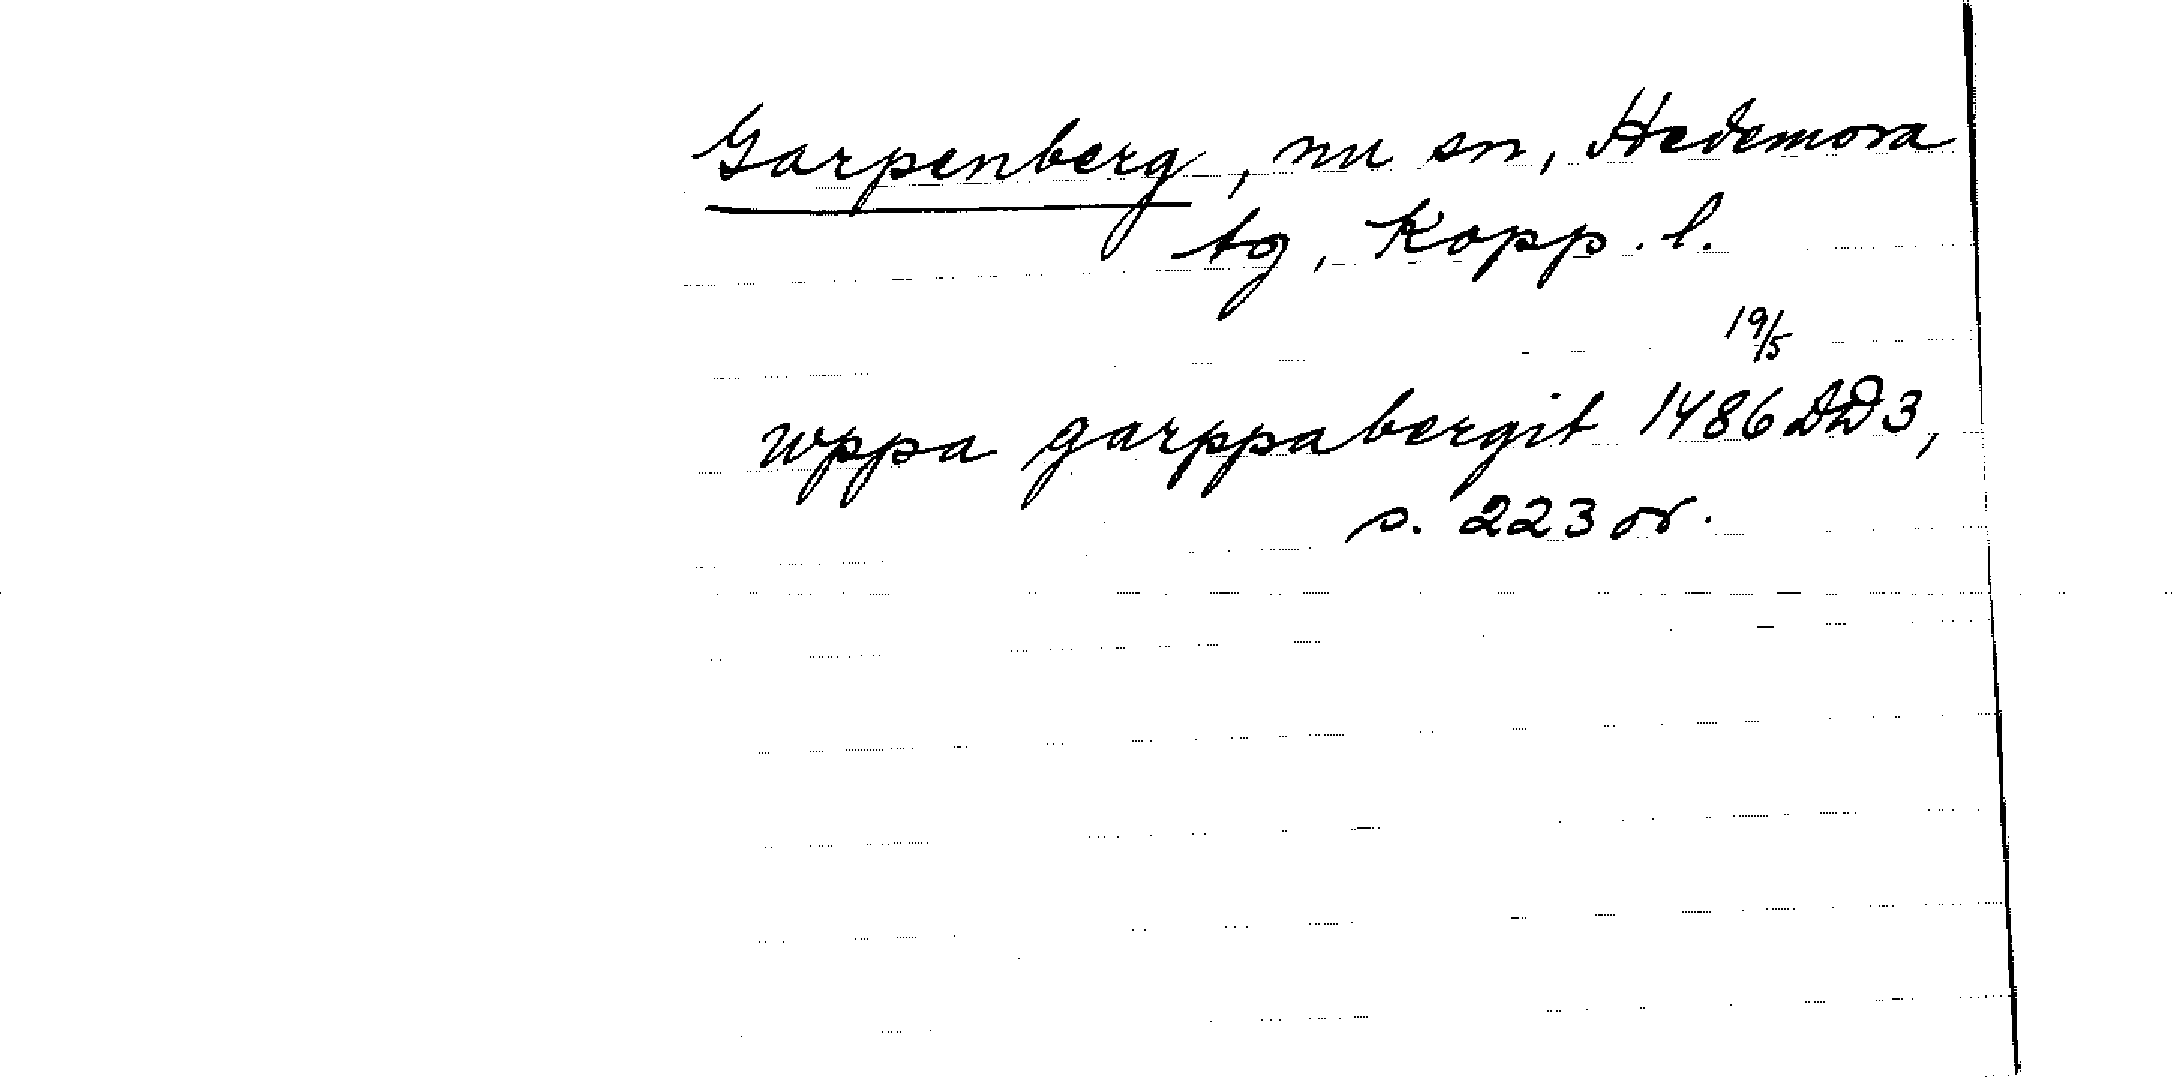 Garpenberg, nu sn, Hedemora
tg, Kopp. l.
19/5
wppa garppabergit 1486 DD3,
s. 223 or.